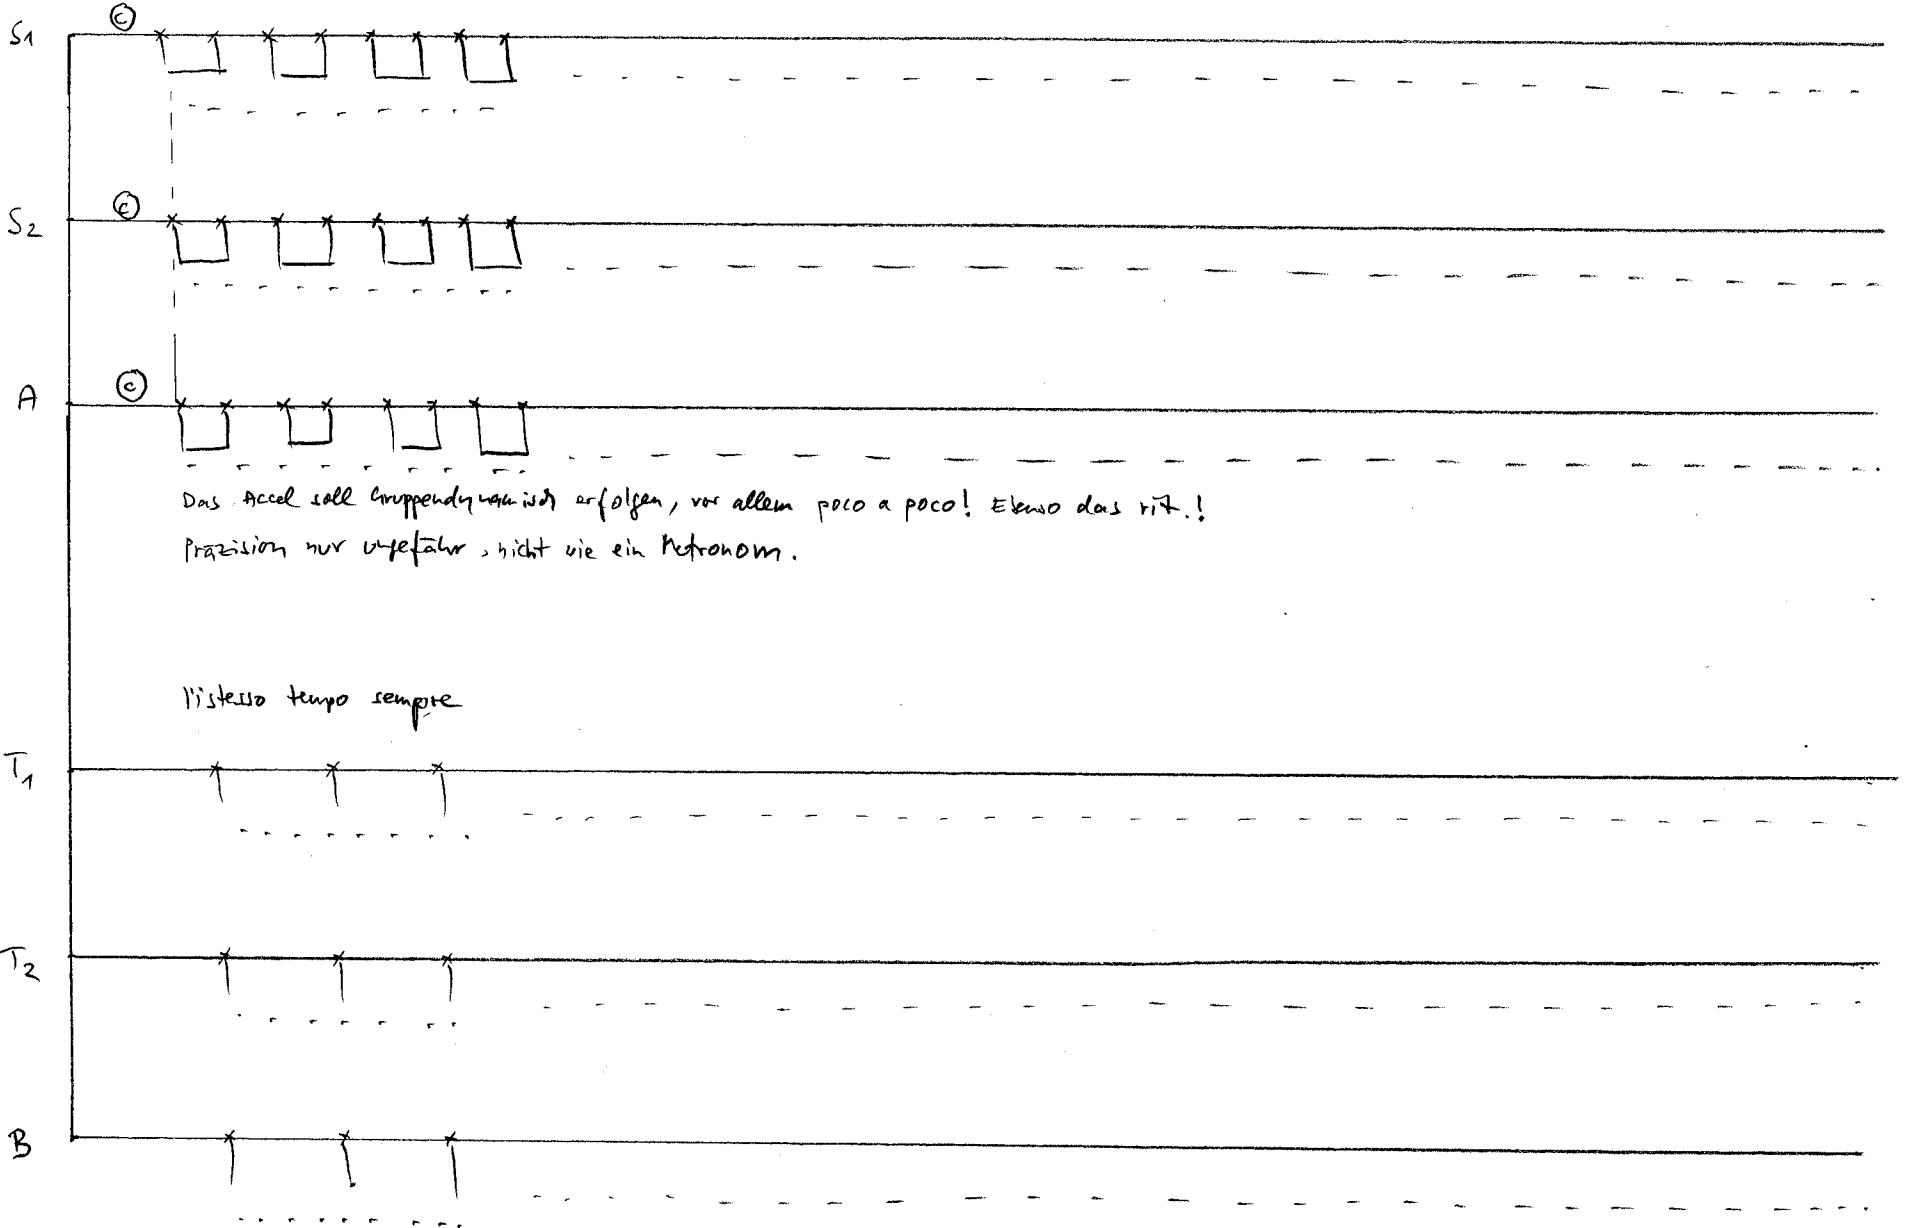 S1 ©
S2 ©
A ©
Das Accel soll Gruppendynamisch erfolgen, vor allem poco a poco! Ebenso das rit.!
Präzision nur ungefähr, nicht wie ein Metronom.
l'istesso tempo sempre
T1
T2
B